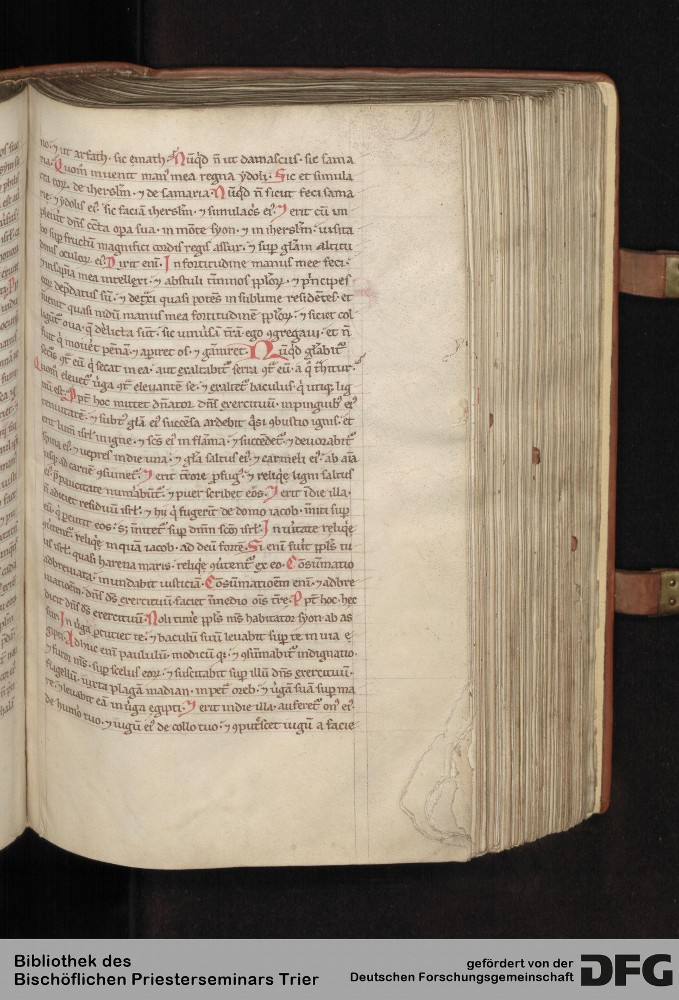 no· ⁊ ut arfath· sic emath· Nūq̄d n̄ ut damascus· sic sama
ria· Quom̄ inuenit man᷒ mea regna ydoli· Sic et simula
cra eoꝝ de iherslm̄· ⁊ de samaria· Nūq̄d n̄ sicut feci sama
rie· ⁊ ydolis ei᷒· sic faciā iherslm̄· ⁊ simulacs̄ ei᷒· ⁊ erit cū im
pleuit dn̄s cc̄ta op̄a sua· in mōte syon· ⁊ in iherslm̄· uisita
bo sup fructū magnifici cordis regis assur· ⁊ sup gl̄am altitu
dinis oculoꝝ ei᷒· Dixit enī· In fortitudine manus mee feci·
⁊ in sapīa mea intellexi· ⁊ abstuli t̄minos pploꝝ· ⁊ p̄ncipes
eoꝝ dep̄datus sū· ⁊ detr̄xi quasi potēs in sublime residētes· et
inuenit quasi nidū manus mea fortitudinē pploꝝ· ⁊ sicut col
ligūt᷑ oua· q̄ derelicta sūt· sic uniu᷒sā t̄rā ego ꝯgregaui· et n̄
fuit q̄ mouet᷑ pēnā· ⁊ apiret os· ⁊ gāniret· Nūq̄d gl̄abit᷑
secus ꝯt᷑ eū q̄ secat in ea· aut exaltabit᷑ serra ꝯt᷑ eū· a q̄ t̄hitur·
Quom̄ eleuet᷑ uiga ꝯt᷑ eleuantē se· ⁊ exaltet᷑ baculus· q̄ utiq; lig
nū est· Ppt᷑ hoc mittet dn̄ator dn̄s exercituū· in pinguib᷒ ei᷒
tenuitatē· ⁊ subt᷒ gl̄a ei᷒ succēsa ardebit q̄si ꝯbustio ignis· et
erit lum̄ isrl̄ in igne· ⁊ scs̄ ei᷒ in flāma· ⁊ succēdet᷑· ⁊ deuorabit᷑
spina ei᷒· ⁊ uepres in die una· ⁊ gl̄a saltus ei᷒· ⁊ carmeli ei᷒· ab aīa
usq; ad carnē ꝯsumet᷑· ⁊ erit t̄rore ꝓfug᷒· ⁊ reliq̄e ligni saltus
ei᷒ p̄ paucitate num̄abūt᷑· ⁊ puer scribet eos· ⁊ erit ī die illa·
n̄ adiciet residuū isrl̄· ⁊ hii q̄ fugerūt de domo iacob· īniti sup
eū· q̄ pcutit eos· s; īnitet᷑ sup dn̄m scm̄ isrl̄· In ū̄itate reliq̄e
ꝯū̄tent᷑· reliq̄e inquā iacob· ad deū fortē· Si enī fuit ppls̄ tu
us isrl̄· quasi harena maris· reliq̄e ꝯū̄tent᷑ ex eo· Cōsūmatio
adbreuiata· inundabit iusticiā· Cōsūmatioēm enī· ⁊ adbre
uiatioēm· dn̄s ds̄ exercituū faciet in medio ōis t̄re· Ppt᷑ hoc hec
dicit dn̄s ds̄ exercituū· Noli tim̄e ppls̄ m̄s habitator syon· ab as
sur· In ū̄ga pcutiet te· ⁊ baculū suū leuabit sup te in uia e
gipti· Adhuc enī paululū modicū q̄· ⁊ ꝯsūmabit᷑ indignatio·
⁊ furor m̄s· sup scelus eoꝝ· ⁊ suscitabit sup illū dn̄s exercituū·
flagellū· iuxta plagā madian· in pet᷑ oreb· ⁊ ū̄gā suā sup ma
re· ⁊ leuabit eā in ū̄ga egipti· ⁊ erit in die illa· auferet᷑ on᷒ ei᷒·
de hum̄o tuo· ⁊ iugū ei᷒ de collo tuo· ⁊ ꝯput̄scet iugū a facie
Bibliothek des
Bischöflichen Priesterseminars Trier
gefördert von der
Deutschen Forschungsgemeinschaft
DFG